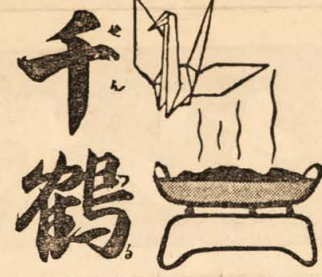 千鶴
せんづる